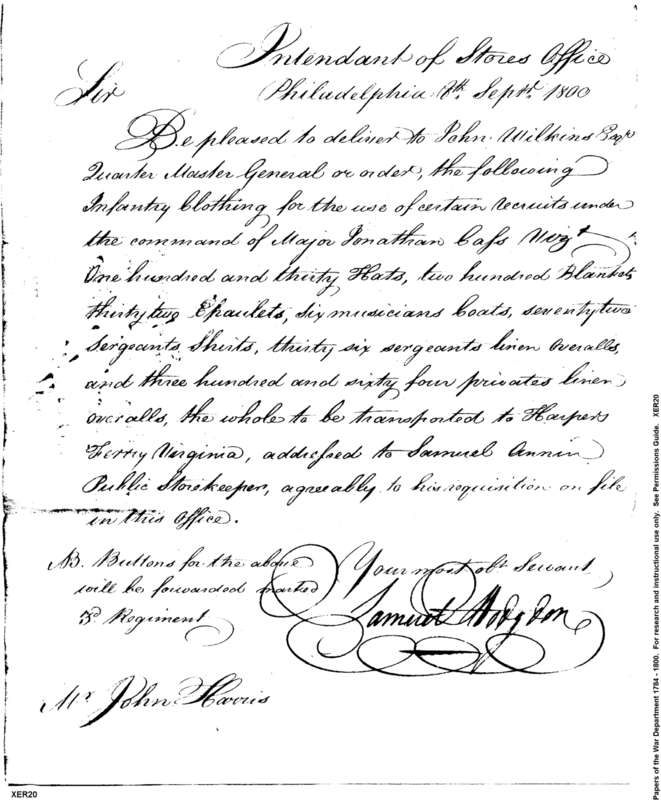 Intendant of Stores Office
Sir Philadelphia 8th. Sept. 1800
Be pleased to deliver to John Wilkins Esqr
Quarter Master General or order, the following
Infantry Clothing for the use of certain recruits under
the command of Major Jonathan Cass Vizt
One hundred and thirty Hats, two hundred Blankets
thirty two Epaulets, six musicians Coats, seventy two
Sergeants Shirts, thirty six sergeants linen overalls,
and three hundred and sixty four privates linen
overalls, the whole to be transported to Harpers
Ferry Virginia, addressed to Samuel Annin
Public Storekeeper, agreeably to his requisition on file
in this Office.
NB. Buttons for the above
will be forwarded marked
3d Regiment
Your most obt Servant
Samuel Hodgdon
Mr John Harris
XER20
Papers of the War Department 1784 - 1800. For research and instructional use only. See Permissions Guide. XER20